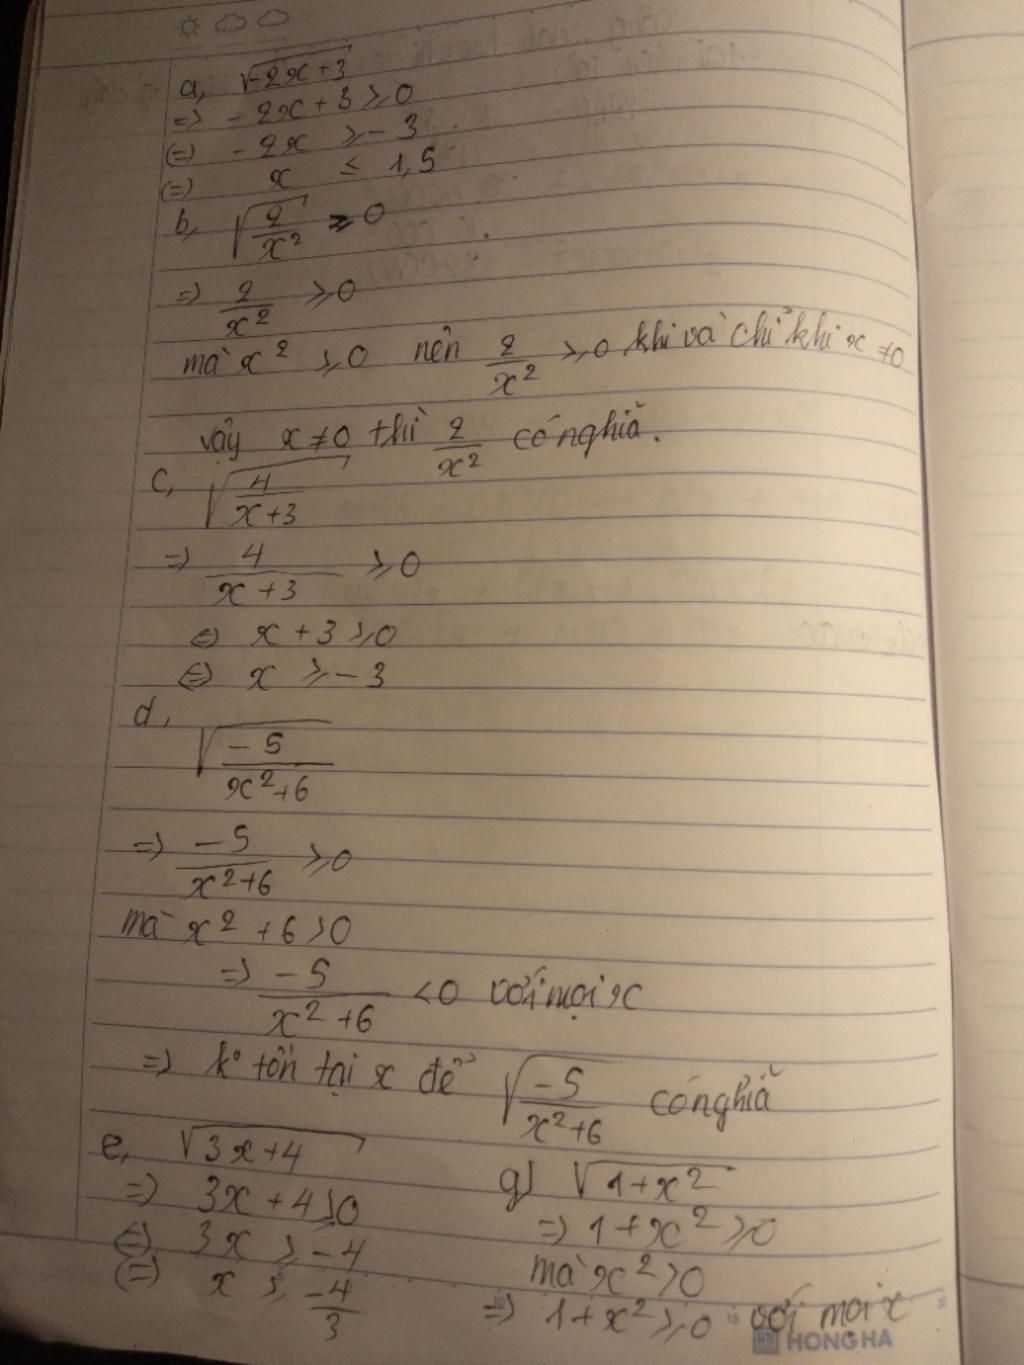 a, √-2x+3
=> -2x+3 ≥ 0
(=) -2x ≥ -3
(=) x ≤ 1,5
b, √2/x² ≥ 0
=> 2/x² ≥ 0
mà x² ≥ 0 nên 2/x² ≥ 0 khi và chỉ khi x ≠ 0
vậy x ≠ 0 thì 2/x² có nghĩa.
c, √4/x+3
=> 4/x+3 ≥ 0
(=) x+3 ≥ 0
(=) x ≥ -3
d, √-5/x²+6
=> -5/x²+6 ≥ 0
mà x²+6 > 0
=> -5/x²+6 < 0 với mọi x
=> k° tồn tại x để √-5/x²+6 có nghĩa
e, √3x+4
=> 3x+4 ≥ 0
(=) 3x ≥ -4
(=) x ≥ -4/3
g) √1+x²
=> 1+x² ≥ 0
mà x² > 0
=> 1+x² ≥ 0 với mọi x
HONG HA